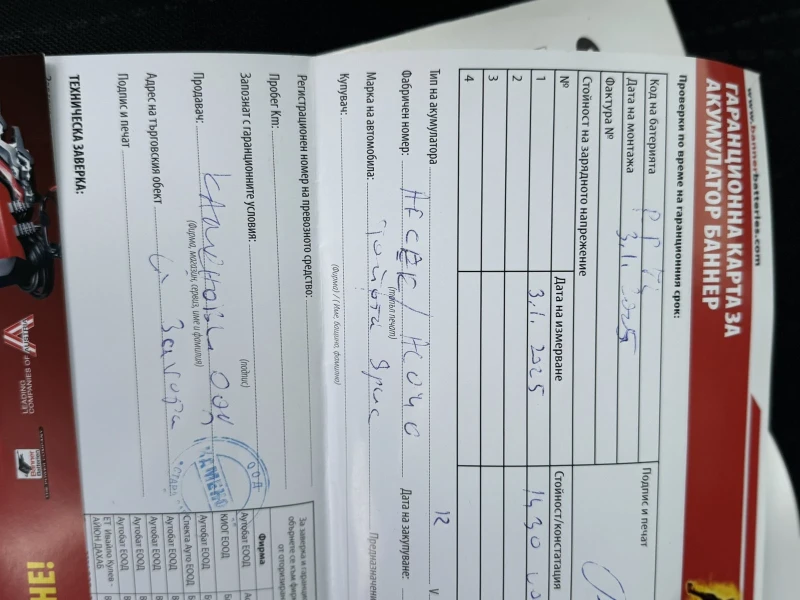 www.bannerbatteries.com
ГАРАНЦИОННА КАРТА ЗА
АКУМУЛАТОР БАННЕР
Проверки по време на гаранционния срок:
Код на батерията
Подпис и печат
Дата на монтажа 3.1. 2025
Фактура №
Стойност на зарядното напрежение
№ Дата на измерване Стойност/констатация
1 3.1. 2025 1430
2
3
4
Тип на акумулатора 12 V
Фабричен номер: Дата на закупуване:
(топъл печат)
Марка на автомобила: Тойота Ярис
Купувач:
(Фирма) / (Име, бащино, фамилно)
Регистрационен номер на превозното средство:
Пробег Km:
Запознат с гаранционните условия:
(подпис)
Продавач: ООД
(Фирма, магазин, сервиз, име и фамилия)
Адрес на търговския обект
Подпис и печат
ТЕХНИЧЕСКА ЗАВЕРКА:
За заверка и гаранц
обърнете се към фирм
от оторизиран
Фирма
Аутобат ЕООД
КИОГ ЕООД
Аутобат ЕООД
Спекта Ауто ЕООД
Аутобат ЕООД
Аутобат ЕООД
Аутобат ЕООД
Аутобат ЕООД
ЕТ Ивайло Кулев -
АЙОН ДАХАБ
НЕ!